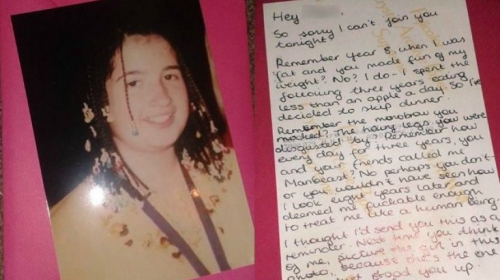 Hey
So sorry I can't join you
tonight.
Remember Year 8, when I was
fat and you made fun of my
weight? No? I do - I spent the
following three years eating
less than an apple a day. So I've
decided to skip dinner.
Remember the monobrow you
mocked? The hairy legs you were
disgusted by? Remember how
every day for three years, you
and your friends called me
Manbeast? No perhaps you don't
or you wouldn't have seen how
I look eight years later and
deemed me fuckable enough
to treat me like a human being
I thought I'd send you this as a
reminder. Next time you think
of me, picture this girl in this
photo, because she's the one
who just stood you up.